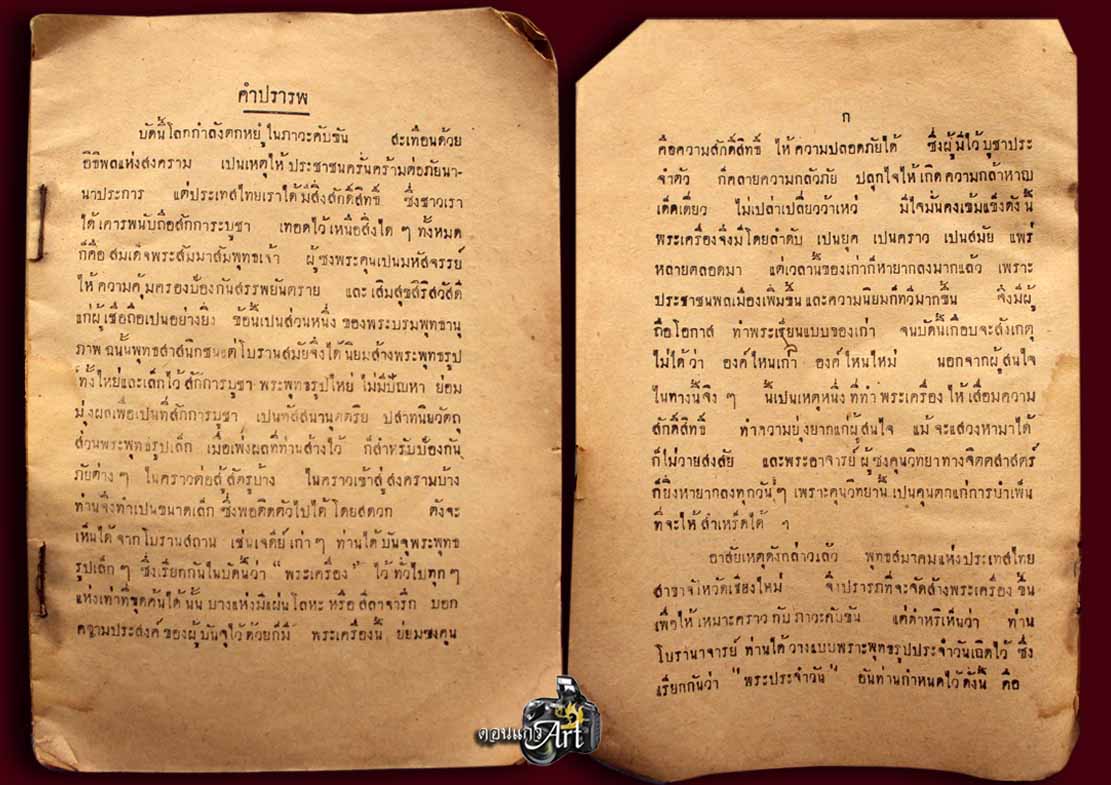 คำปรารพ
บัดนี้โลกกำลังตกหยู่ ในภาวะคับขัน สะเทือนด้วย
อิธิพลแห่งสงคราม เปนเหตุให้ ประชาชนครั่นคร้ามต่อภัยนา-
นาประการ แต่ประเทสไทยเราได้ มีสิ่งสักดิ์สิทธิ์ ซึ่งชาวเรา
ได้ เคารพนับถือสักการะบูชา เทอดไว้ เหนือสิ่งใด ๆ ทั้งหมด
ก็คือ สมเด็จพระสัมมาสัมพุทธเจ้า ผู้ซงพระคุนเปนมหัสจรรย์
ให้ ความคุ้มครองป้องกันสรรพยันตราย และ เสิมสุขสิริสวัสดี
แก่ผู้เชื่อถือเปนอย่างยิ่ง ข้อนี้เปนส่วนหนึ่ง ของพระบรมพุทธานุ
ภาพ ฉนั้นพุทธสาสนิกชนแต่โบรานสมัยจึงได้ นิยมส้างพระพุทธรูป
ทั้งใหย่และเล็กไว้ สักการบูชา พระพุทธรูปใหย่ ไม่มีปัญหา ย่อม
มุ่งผลเพื่อเปนที่สักการบูชา เปนทัสสนานุตตริย ปสาทนียวัตถุ
ส่วนพระพุทธรูปเล็ก เมื่อเพ่งผลที่ท่านส้างไว้ ก็สำหรับป้องกัน
ภัยต่าง ๆ ในคราวต่อสู้ สัตรูบ้าง ในคราวเข้าสู่ สงครามบ้าง
ท่านจึงทำเปนขนาดเล็ก ซึ่งพอติดตัวไปได้ โดยสดวก ดังจะ
เห็นได้ จากโบรานสถาน เช่นเจดีย์ เก่า ๆ ท่านได้ บันจุพระพุทธ
รูปเล็ก ๆ ซึ่งเรียกกันในบัดนี้ว่า “ พระเครื่อง ” ไว้ ทั่วไปทุก ๆ
แห่งเท่าที่ขุดค้นได้ นั้น บางแห่งมีแผ่น โลหะ หรือ สิลาจารึก บอก
ความประสงค์ ของผู้ บันจุไว้ ด้วยก็มี พระเครื่องนี้ ย่อมซงคุน
ก
คือความสักดิ์สิทธิ์ ให้ ความปลอดภัยได้ ซึ่งผู้ มีไว้ บูชาประ
จำตัว ก็คลายความกลัวภัย ปลุกใจให้ เกิดความกล้าหาญ
เด็ดเดี่ยว ไม่เปล่าเปลี่ยวว้าเหว่ มีใจมั่นคงเข้มแข็งดังนี้
พระเครื่องจึงมีโดยลำดับ เปนยุค เปนคราว เปนสมัย แพร่
หลายตลอดมา แต่เวลานี้ของเก่าก็หายากลงมากแล้ว เพราะ
ประชาชนพลเมืองเพิ่มขึ้น และความนิยมก็ทวีมากขึ้น จึ่งมีผู้
ถือโอกาส ทำพระเรียนแบบของเก่า จนบัดนี้เกือบจะสังเกตุ
ไม่ได้ ว่า องค์ ไหนเก่า องค์ ไหนใหม่ นอกจากผู้ สนใจ
ในทางนี้จิง ๆ นี้เปนเหตุหนึ่ง ที่ทำ พระเครื่อง ให้ เสื่อมความ
สักดิ์สิทธิ์ ทำความยุ่งยากแก่ผู้ สนใจ แม้ จะแสวงหามาได้
ก็ไม่วายสงสัย และพระอาจารย์ ผู้ ซงคุนวิทยาทางจิตตสาสตร์
ก็ยิ่งหายากลงทุกวัน ๆ เพราะคุนวิทยานี้ เปนคุนตกแก่การบำเพ็น
ที่จะให้ สำเหร็ดได้ ฯ
อาสัยเหตุดังกล่าวแล้ว พุทธสมาคมแห่งประเทสไทย
สาขาจังหวัดเชียงใหม่ จึงปรารภที่จะจัดส้างพระเครื่อง ขึ้น
เพื่อให้ เหมาะคราว กับ ภาวะคับขัน แต่ดำหริเห็นว่า ท่าน
โบรานาจารย์ ท่านได้ วางแบบพระพุทธรูปประจำวันเฉิดไว้ ซึ่ง
เรียกกันว่า “ พระประจำวัน ” อันท่านกำหนดไว้ ดังนี้ คือ
ดอนแก้ว Art